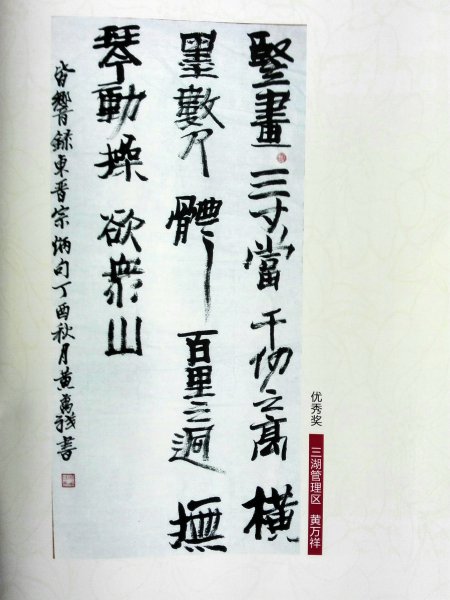 竪畫三寸當千仞之高橫
墨數尺體百里之迥撫
琴動操欲衆山
皆響錄東晉宗炳句丁酉秋月黃萬祥書
优秀奖
三湖管理区 黄万祥